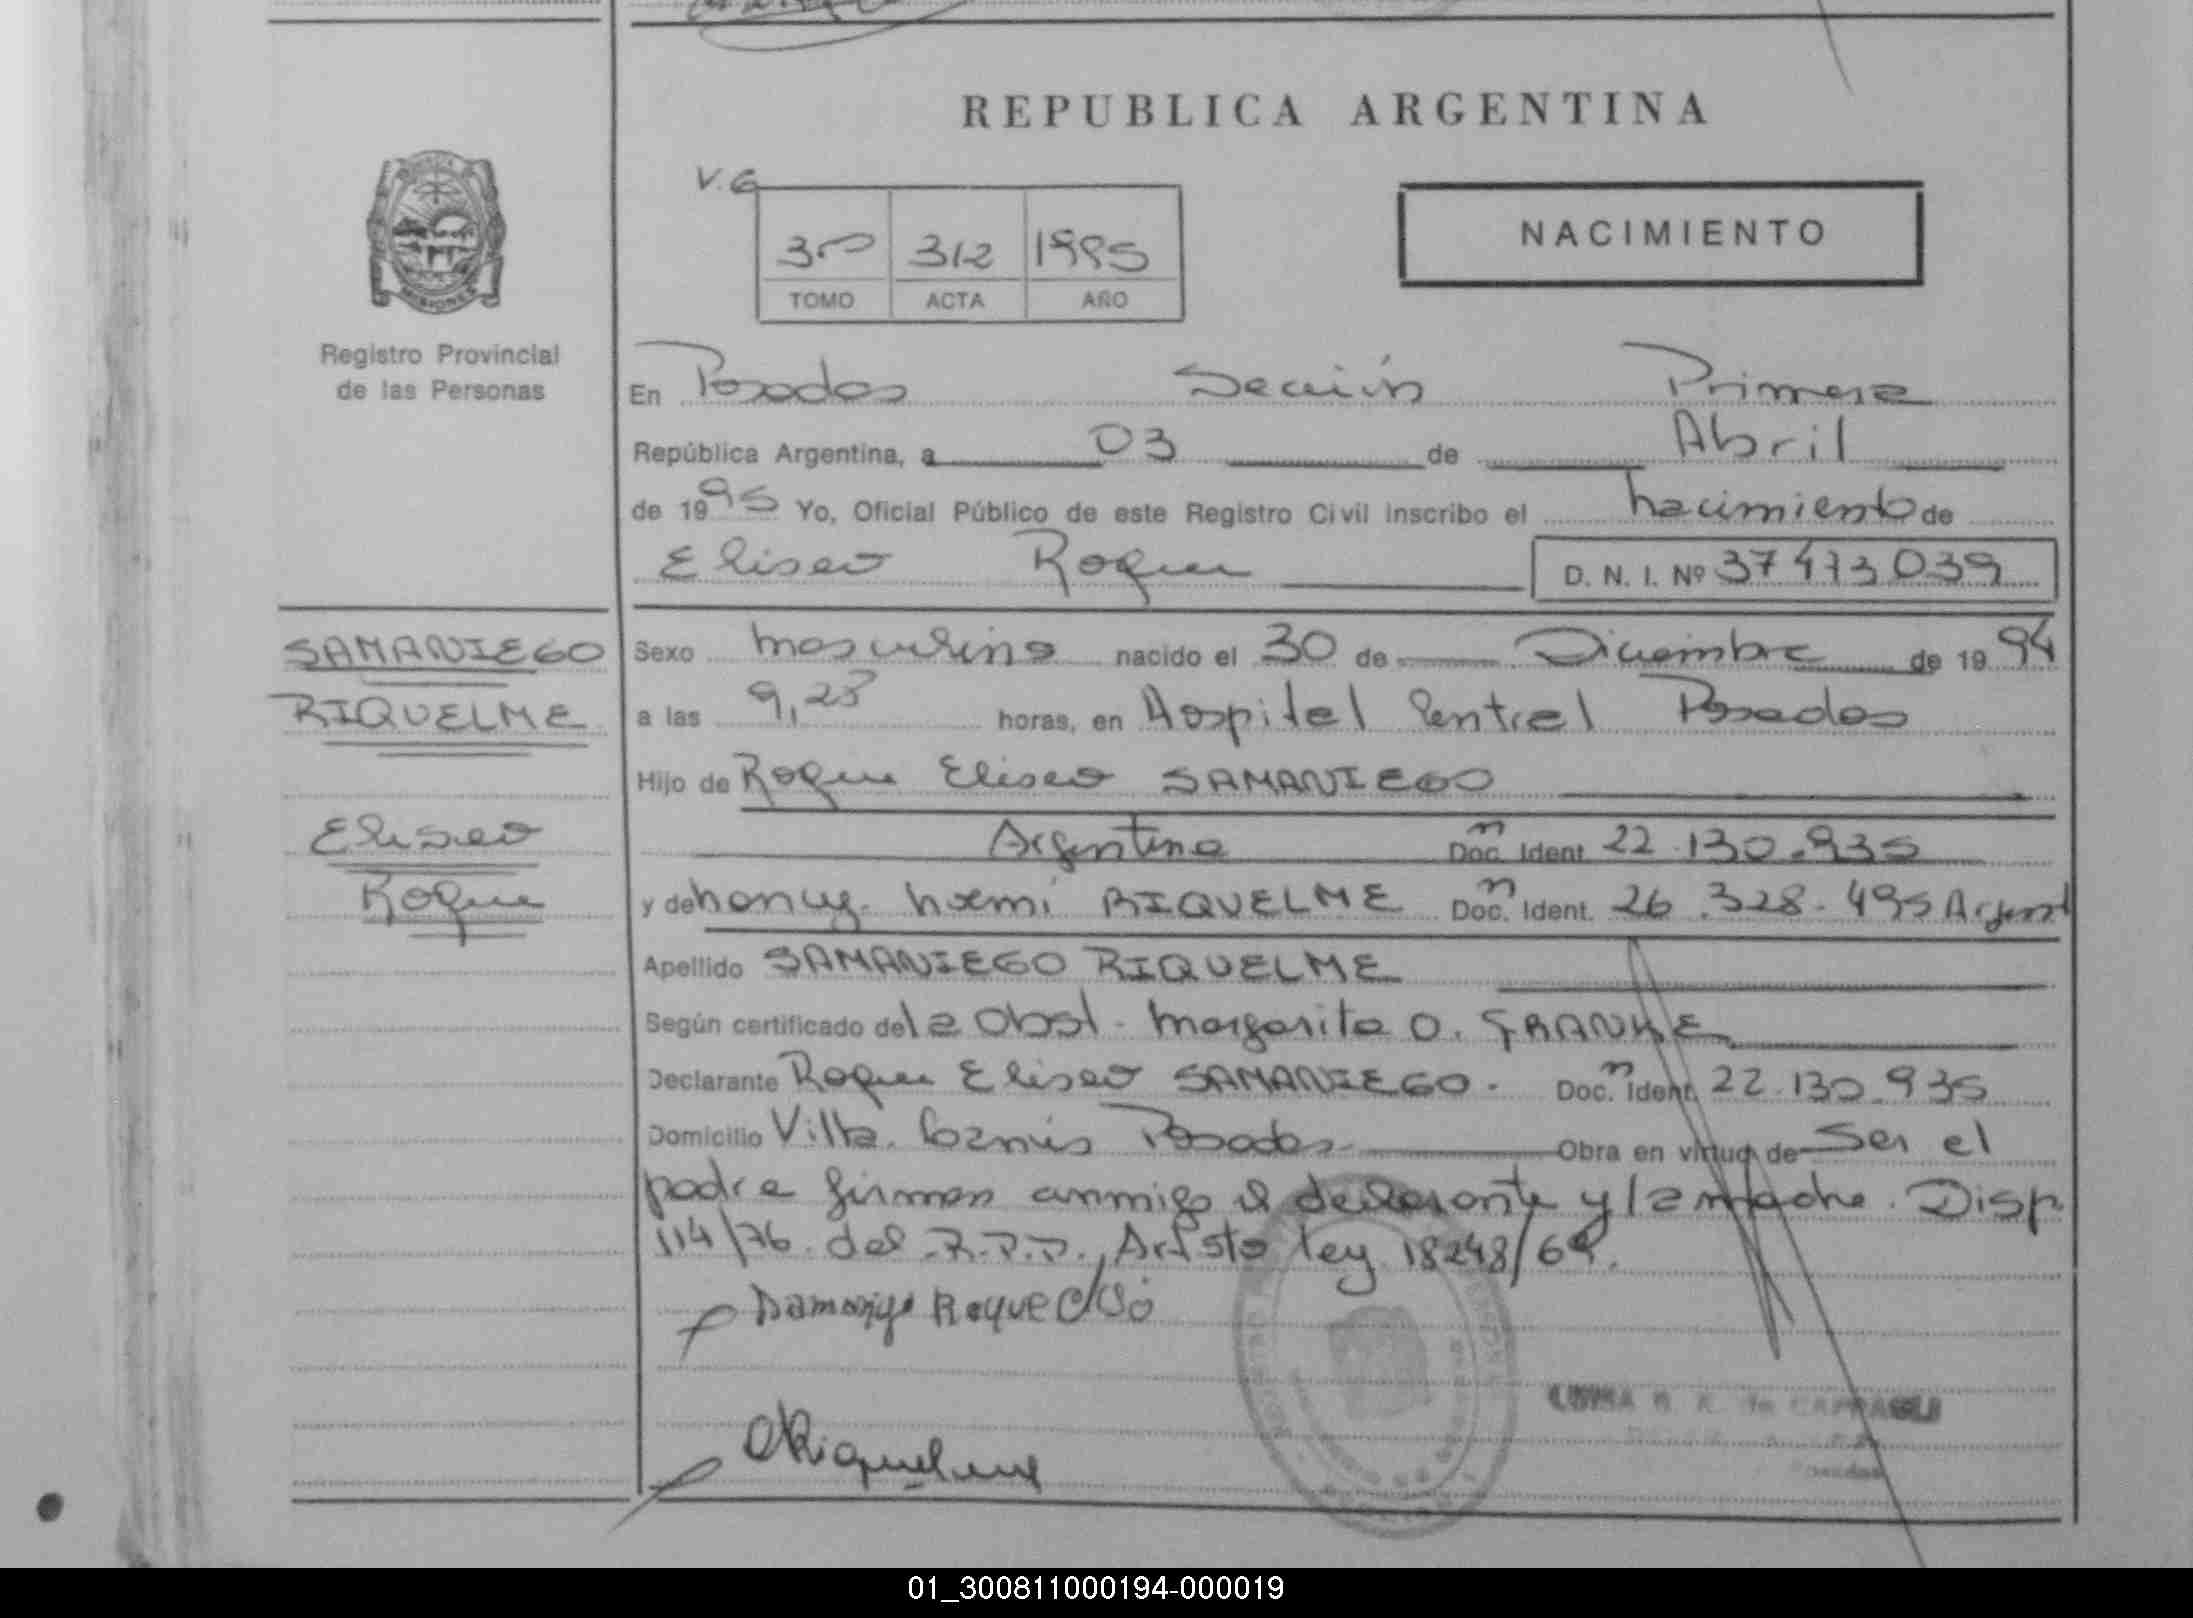 REPUBLICA ARGENTINA
V.G
312 1995
TOMO ACTA AÑO
NACIMIENTO
MISIONES
Registro Provincial
de las Personas
En Posadas Sección Primera
República Argentina, a 03 de Abril
de 1995 Yo, Oficial Público de este Registro Civil inscribo el nacimiento de
Eliseo Roque D. N. I. Nº 37473039
SAMANIEGO
RIQUELME
Eliseo
Roque
Sexo masculino nacido el 30 de Diciembre de 1994
a las 9,23 horas, en Hospital Central Posadas
Hijo de Roque Eliseo SAMANIEGO
Argentina Doc. Ident. 22.130.935
y de nancy noemi RIQUELME Doc. Ident. 26.328.495 Argent
Apellido SAMANIEGO RIQUELME
Según certificado de la Obst. Margarita O. FRANKE
Declarante Roque Eliseo SAMANIEGO. Doc. Ident. 22.130.935
Domicilio Villa Posadas Obra en virtud de Ser el
padre firman conmigo el declarante y la madre. Disp
114/76 del R.P.P., Art 5to ley 18248/69.
Roque
Riquelme
LUISA de
Posadas
01_300811000194-000019